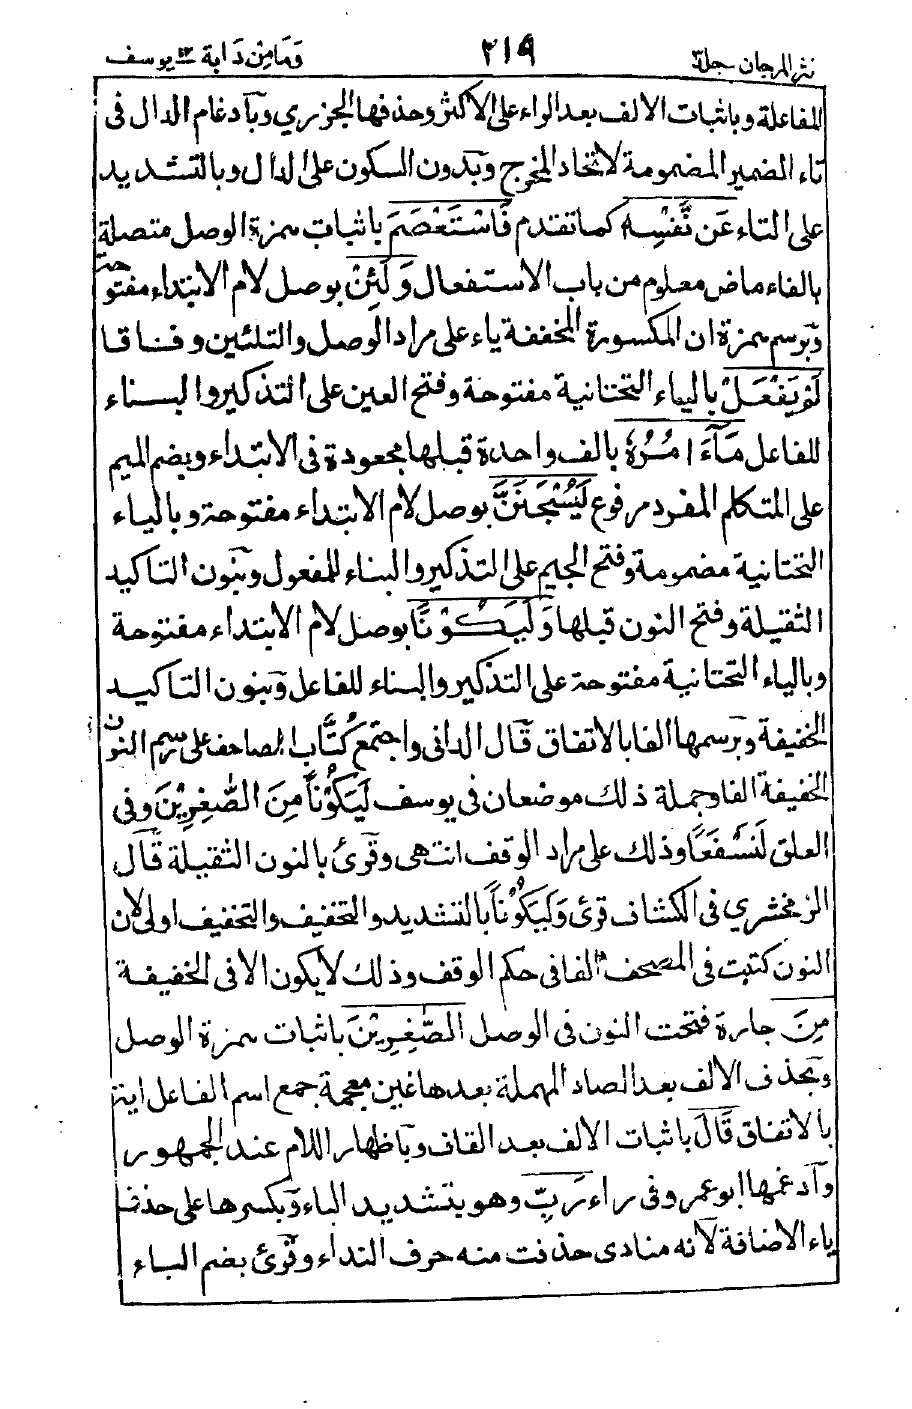 نثر المرجان جلد
٢١٩
وَمَا مِنْ دَابة ١٢ يوسف
المفاعلة وباثبات الالف بعد الراء على الاكثر وحذفها الجزري وبآدغام الدال فى
تاء الضمير المضمومة لاتحاد المخرج وبَدون السكون على الدال وبالتشديد
على التاء عَن نَّفْسِهٖ كما تقدم فَاسْتَعْصَمَ باثبات همزة الوصل متصلة
بالفاء ماض معلوم من باب الاستفعال وَلَئِنْ بوصل لام الابتداء مفتوحة
وبَرسم همزة ان المكسورة المخففة ياء على مراد الوصل والتليين وفاقا
لَمْ يَفْعَلْ بالياء التحتانية مفتوحة وفتح العين على التذكير والبناء
للفاعل مَآ ءَامُرُهٗ بالف واحدة قبلها مجعودة فى الابتداء وبضم الميم
على المتكلم المفرد مرفوع لَيُسْجَنَنَّ بوصل لام الابتداء مفتوحة وبالياء
التحتانية مضمومة وفتح الجيم على التذكير والبناء للمفعول وبَنون التاكيد
الثقيلة وفتح النون قبلها وَلَيَكُوْنًا بوصل لام الابتداء مفتوحة
وبالياء التحتانية مفتوحة على التذكير والبناء للفاعل وبَنون التاكيد
الخفيفة وبَرسمها الفا بالاتفاق قَال الدانى واجتمع كُتَّاب المصاحف على رسم النون
الخفيفة الفا وجملة ذلك موضعان فى يوسف لَيَكُوْناً مِنَ الصّٰغِرِيْنَ وفى
العلق لَنَسْفَعًا وذلك على مراد الوقف انتهى وقَرئ بالنون الثقيلة قَال
الزمخشري فى الكشاف قرئ وَلَيَكُوْناً بالتشديد والتخفيف والتخفيف اولى لان
النون كتبت فى المصحف الفا فى حكم الوقف وذلك لا يكون الا فى الخفيفة
مِنَ جارة فتحت النون فى الوصل الصّٰغِرِيْنَ باثبات همزة الوصل
وبَحذف الالف بعد الصاد المهملة بعدها غين معجمة جمع اسم الفاعل اية
بالاتفاق قَالَ باثبات الالف بعد القاف وبآظهار اللام عند الجمهور
وآدغمها ابو عمرو فى راء رَبِّ وهو بتشديد الباء وبَكسرها على حذف
ياء الاضافة لآنه منادى حذفت منه حرف النداء وقَرئ بضم الباء